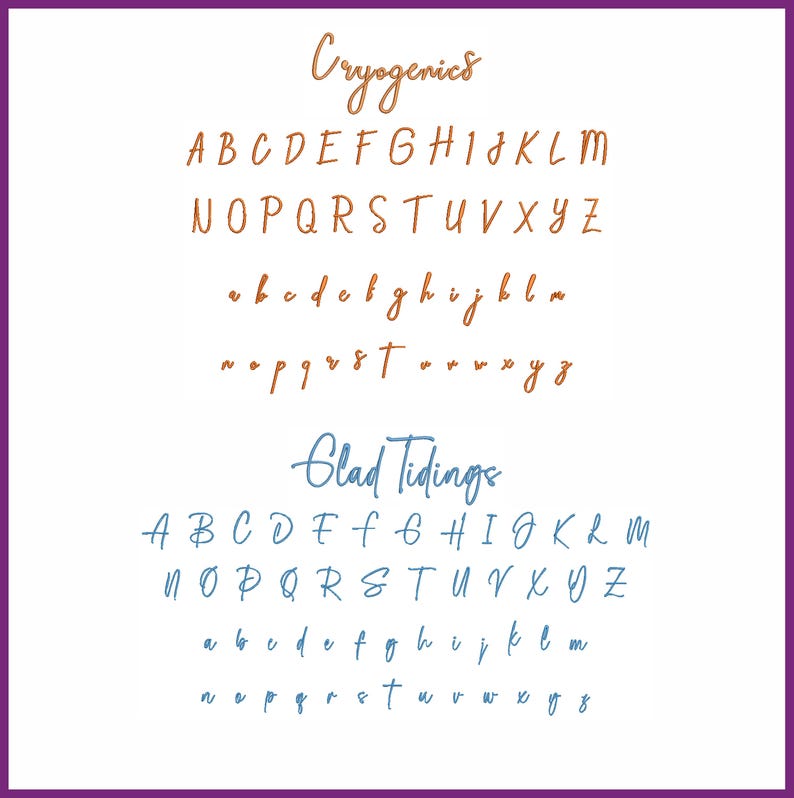 Cryogenics
A B C D E F G H I J K L M
N O P Q R S T U V X Y Z
a b c d e f g h i j k l m
n o p q r s t u v w x y z
Glad Tidings
A B C D E F G H I J K L M
N O P Q R S T U V X Y Z
a b c d e f g h i j k l m
n o p q r s t u v w x y z